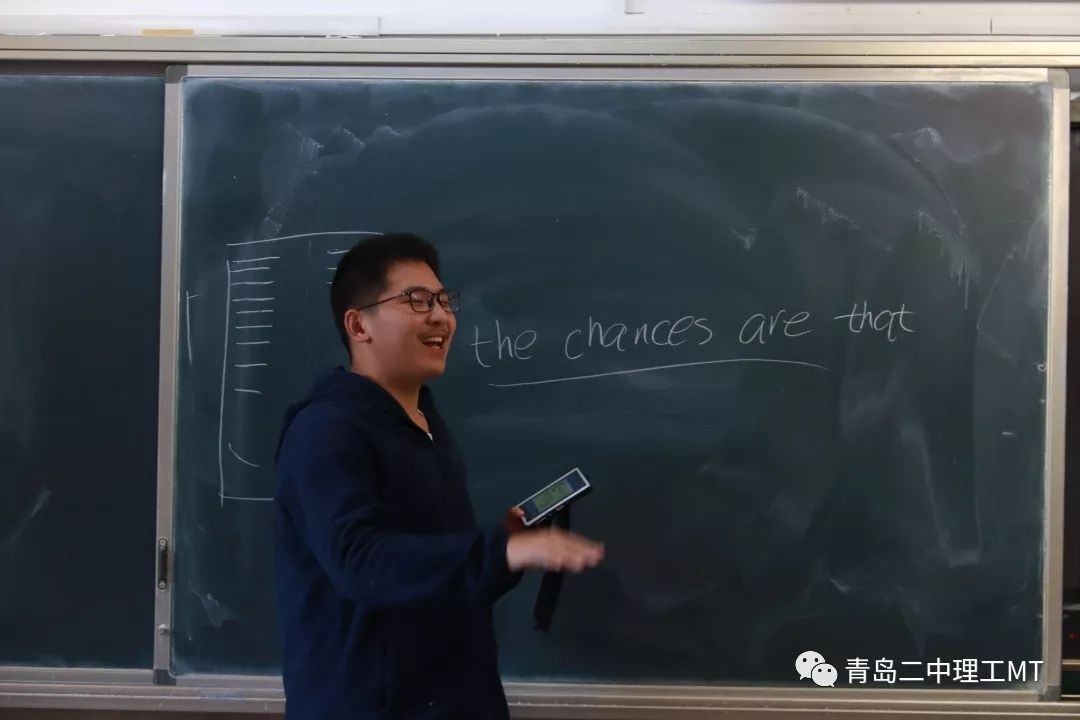 the chances are that
青岛二中理工MT